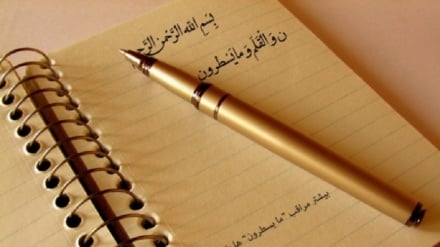 بِسْمِ اللهِ الرَّحْمنِ الرَّ
ن وَ الْقَلَمِ وَ مَا يَسْطُرونَ
بیشتر مراقب "ما یسطرون" ها